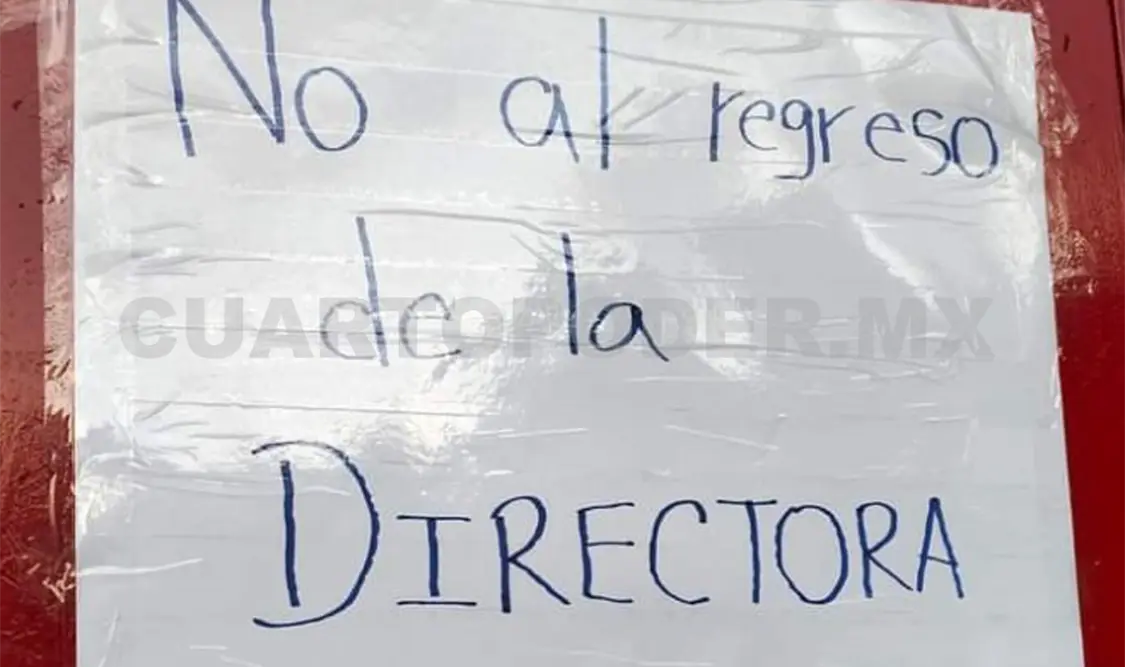 No al regreso
de la
CUARTOPODER.MX
DIRECTORA